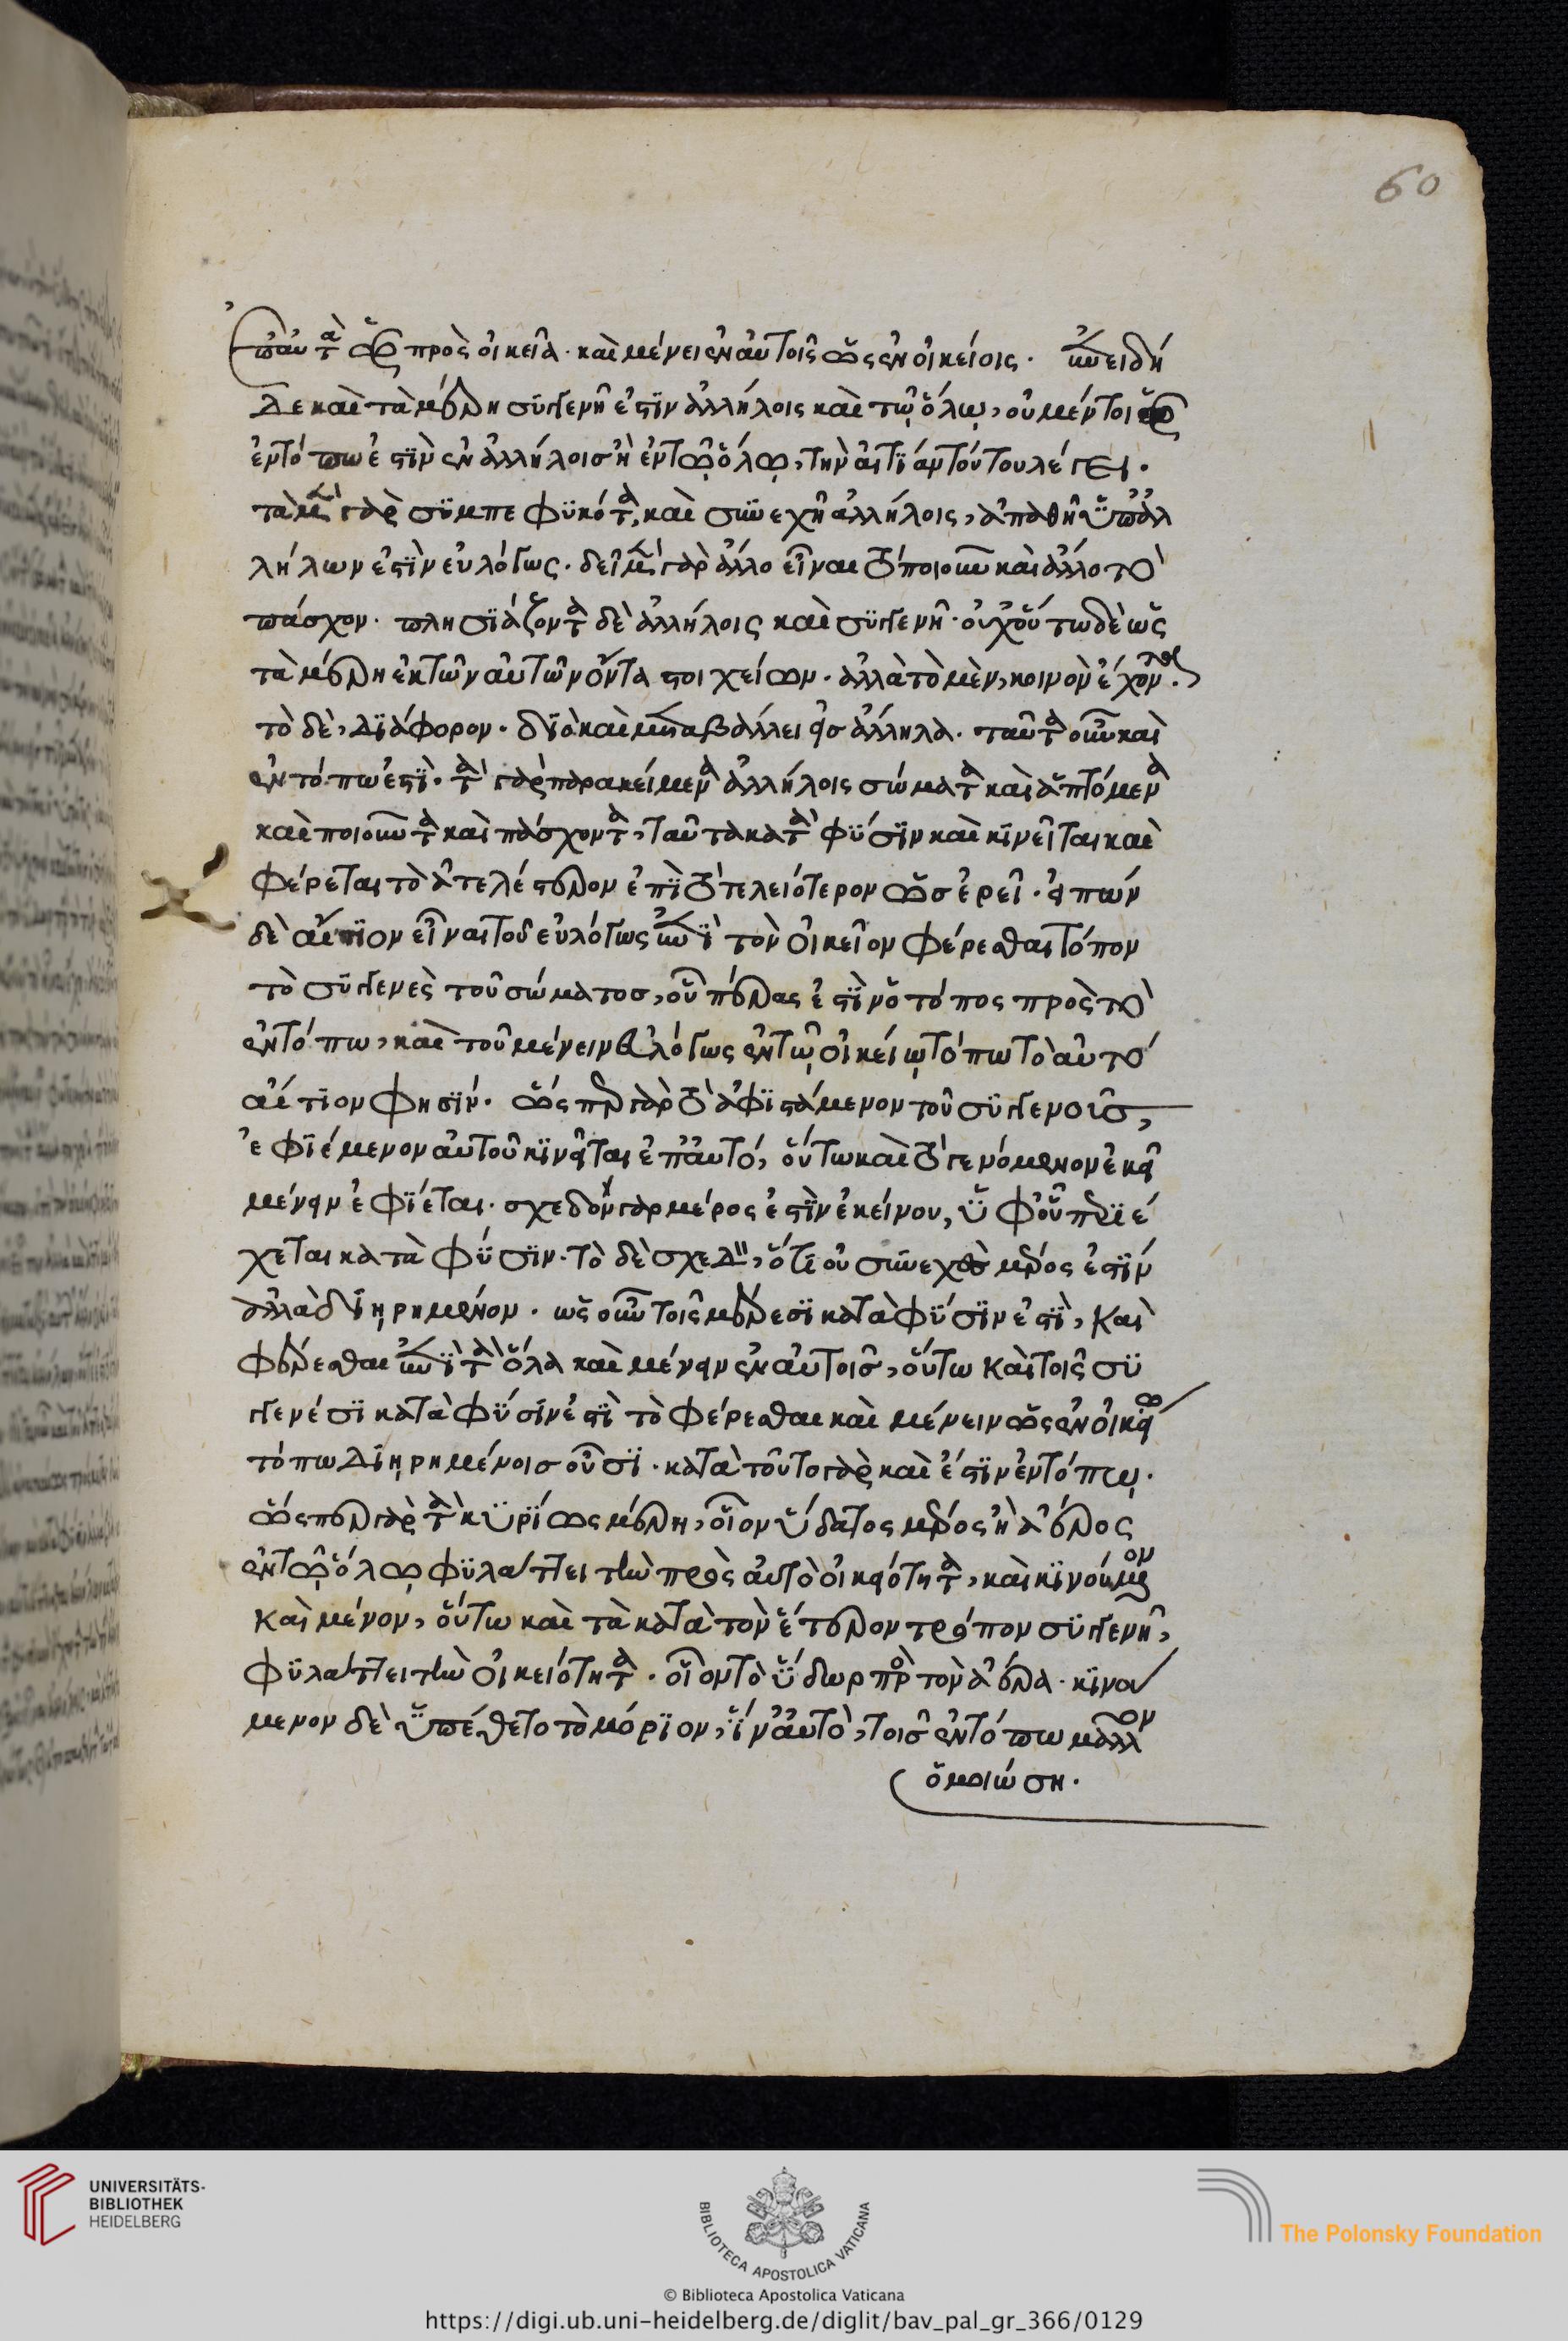 60
ἐπ αὐτὰ ὡς πρὸς οἰκεῖα· καὶ μένει ἐν αὐτοῖς ὡς ἐν οἰκείοις· ἐπειδὴ
δὲ καὶ τὰ μέρη συγγενῆ ἐστὶν ἀλλήλοις καὶ τῷ ὅλῳ, οὐ μέντοι ὡς
ἐν τόπω ἐστὶν ἐν ἀλλήλοισ ἢ ἐν τῷ ὅλῳ, τὴν αἰτίαν τούτου λέγει·
τὰ μὲν γὰρ συμπεφυκότα, καὶ συνεχῆ ἀλλήλοις, ἀπαθῆ ὑπ ἀλ
λήλων ἐστὶν εὐλόγως· δεῖ μὲν γὰρ ἄλλο εἶναι τὸ ποιοῦν καὶ ἄλλο τὸ
πάσχον· πλησιάζοντα δὲ ἀλλήλοις καὶ συγγενῆ· οὐχ οὕτω δὲ ὡς
τὰ μέρη ἐκ τῶν αὐτῶν ὄντα στοιχείων· ἀλλὰ τὸ μὲν, κοινὸν ἔχοντα·
τὸ δὲ, διάφορον· διὸ καὶ μεταβάλλει εἰσ ἄλληλα· ταῦτα οὖν καὶ
ἐν τόπω ἐστὶ· τὰ γὰρ παρακείμενα ἀλλήλοις σώματα καὶ ἁπτόμενα
καὶ ποιοῦντα καὶ πάσχοντα, ταῦτα κατὰ φύσιν καὶ κινεῖται καὶ
φέρεται τὸ ἀτελέστερον ἐπὶ τὸ τελειότερον ὡσ ἐρεῖ· εἰπὼν
δὲ αἴτιον εἶναι τοῦ εὐλόγως ἐπὶ τὸν οἰκεῖον φέρεσθαι τόπον
τὸ συγγενὲς τοῦ σώματοσ, οὗ πέρας ἐστὶν ὁ τόπος πρὸς τὸ
ἐν τόπω, καὶ τοῦ μένειν εὐλόγως ἐν τῷ οἰκείῳ τόπω τὸ αὐτὸ
αἴτιον φησίν· ὥσπερ γὰρ τὸ ἀφιστάμενον τοῦ συγγενοῦσ,
ἐφιέμενον αὐτοῦ κινεῖται ἐπ αὐτό, οὕτω καὶ τὸ γενόμενον ἐκεῖ
μένειν ἐφίεται· σχεδὸν γὰρ μέρος ἐστὶν ἐκείνου, ὑφ οὗ περιέ
χεται κατὰ φύσιν· τὸ δὲ σχεδὸν, ὅτι οὐ συνεχὲς μέρος ἐστὶν
ἀλλὰ διῃρημένον· ὡς οὖν τοῖς μέρεσι κατὰ φύσιν ἐστὶ, καὶ
φέρεσθαι ἐπὶ τὰ ὅλα καὶ μένειν ἐν αὐτοῖσ, οὕτω καὶ τοῖς συγ
γενέσι κατὰ φύσιν ἐστὶ τὸ φέρεσθαι καὶ μένειν ὡς ἐν οἰκείω
τόπω διῃρημένοισ οὖσι· κατὰ τοῦτο γὰρ καὶ ἔστιν ἐν τόπῳ·
ὥσπερ γὰρ τὰ κυρίως μέρη, οἷον ὕδατος μέρος ἢ ἀέρος
ἐν τῷ ὅλῳ φυλάττει τὴν πρὸς αὐτὸ οἰκειότητα, καὶ κινούμενον
καὶ μένον, οὕτω καὶ τὰ κατὰ τὸν ἕτερον τρόπον συγγενῆ,
φυλάττει τὴν οἰκειότητα· οἷον τὸ ὕδωρ πρὸς τὸν ἀέρα· κινού
μενον δὲ ὑπέθετο τὸ μόριον, ἵν αὐτὸ, τοῖσ ἐν τόπω μᾶλλον
ὁμοιώση·
UNIVERSITÄTS-
BIBLIOTHEK
HEIDELBERG
BIBLIOTECA APOSTOLICA VATICANA
The Polonsky Foundation
© Biblioteca Apostolica Vaticana
https://digi.ub.uni-heidelberg.de/diglit/bav_pal_gr_366/0129